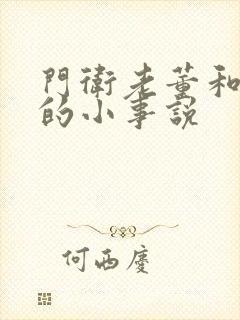 門衛老董和
的小事說
何西慶